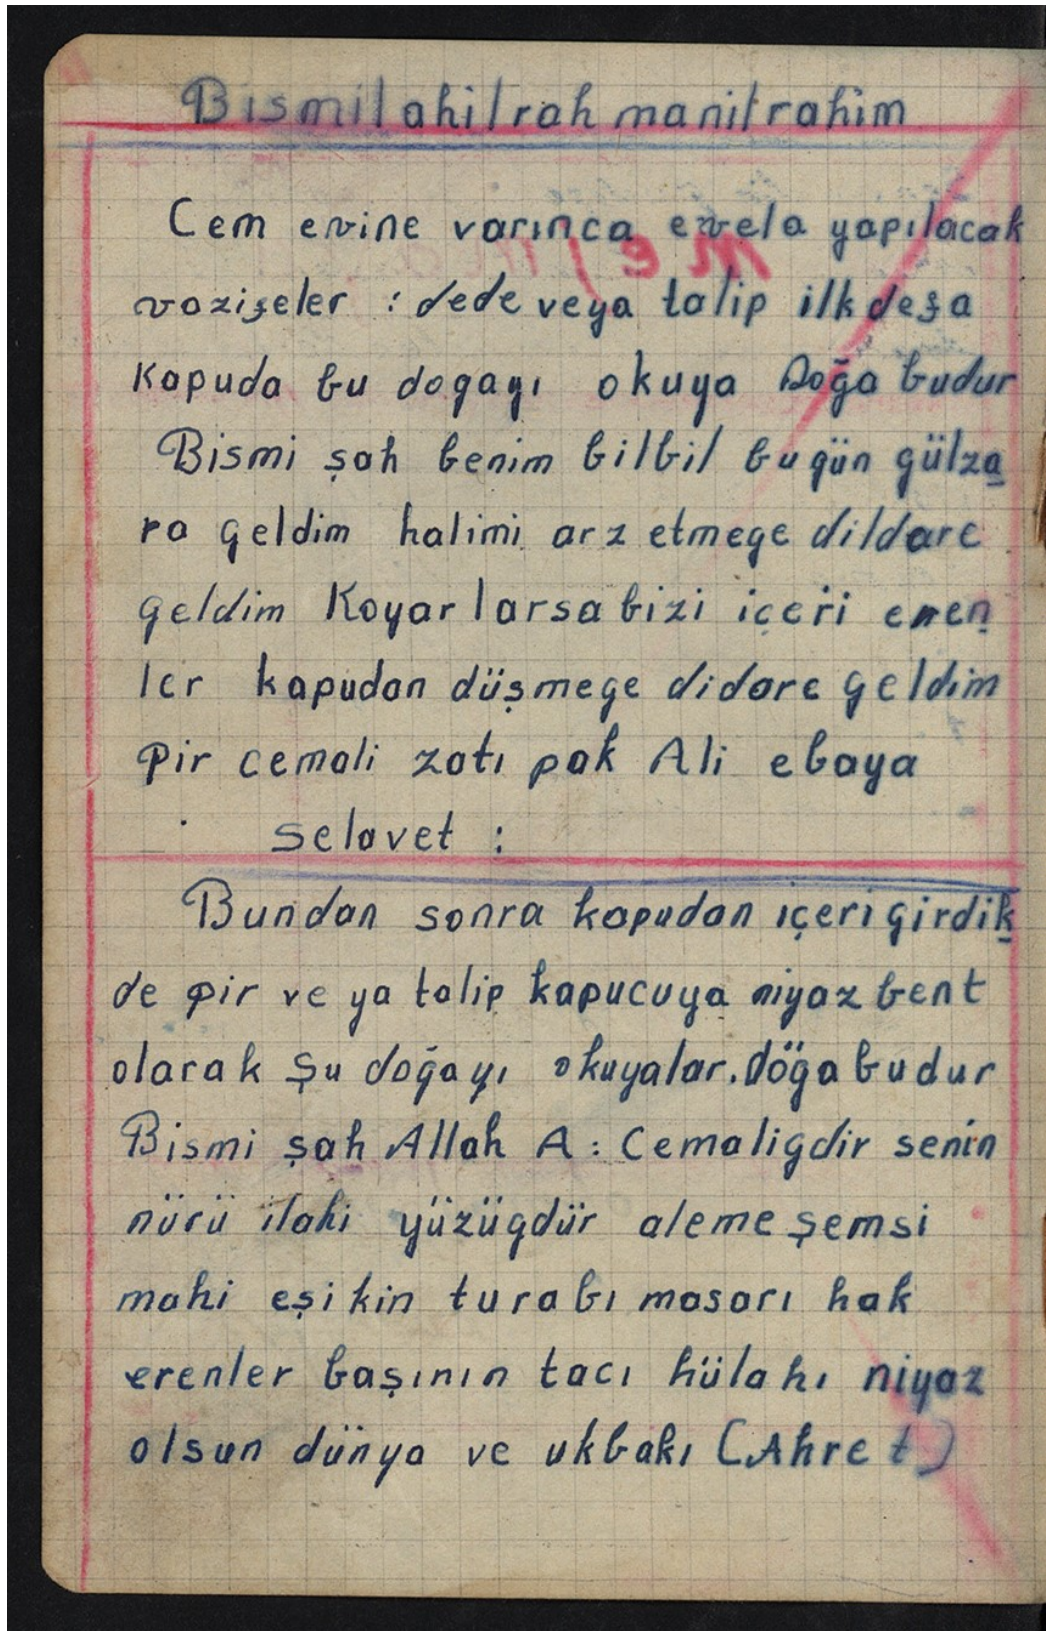 Bismilahilrahmanilrahim
Cem evine varınca evela yapılacak
vazifeler : dede veya talip ilk defa
kapuda bu dogayı okuya Doğa budur
Bismi şah benim bilbil bugün gülza
ra geldim halimi arz etmege dildare
geldim Koyarlarsa bizi içeri eren
ler kapudan düşmege didare geldim
Pir cemali zatı pak Ali ebaya
selavet :
Bundan sonra kapudan içeri girdik
de pir ve ya talip kapucuya niyaz bent
olarak şu doğayı okuyalar. Döğa budur
Bismi şah Allah A : Cemaligdir senin
nürü ilahi yüzügdür aleme şemsi
mahi eşikin turabı masarı hak
erenler başının tacı hülahı niyaz
olsun dünya ve ukbakı (Ahret)